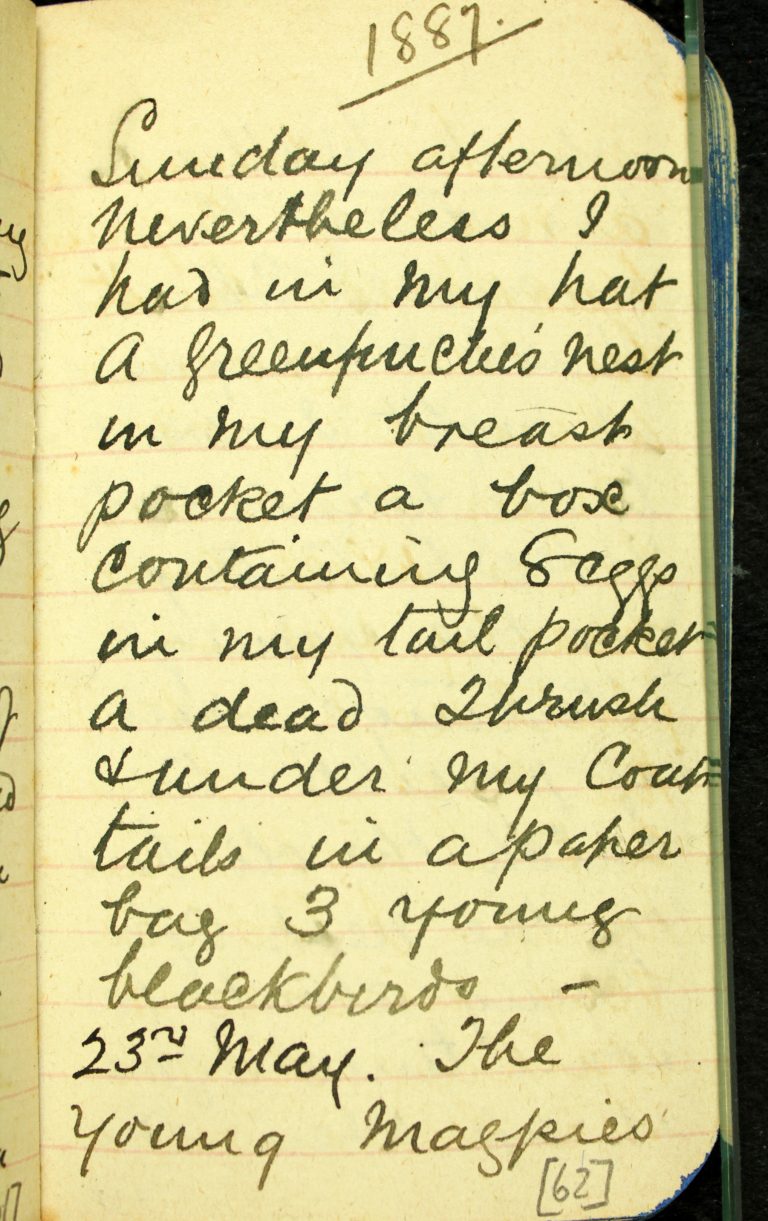 1887.
Sunday afternoon
Nevertheless I
had in my hat
A Greenfinche's nest
in my breast
pocket a box
containing 8 eggs
in my tail pocket
a dead Thrush
& under my Coat
tails in a paper
bag 3 young
blackbirds -
23rd May. The
Young Magpies
[62]